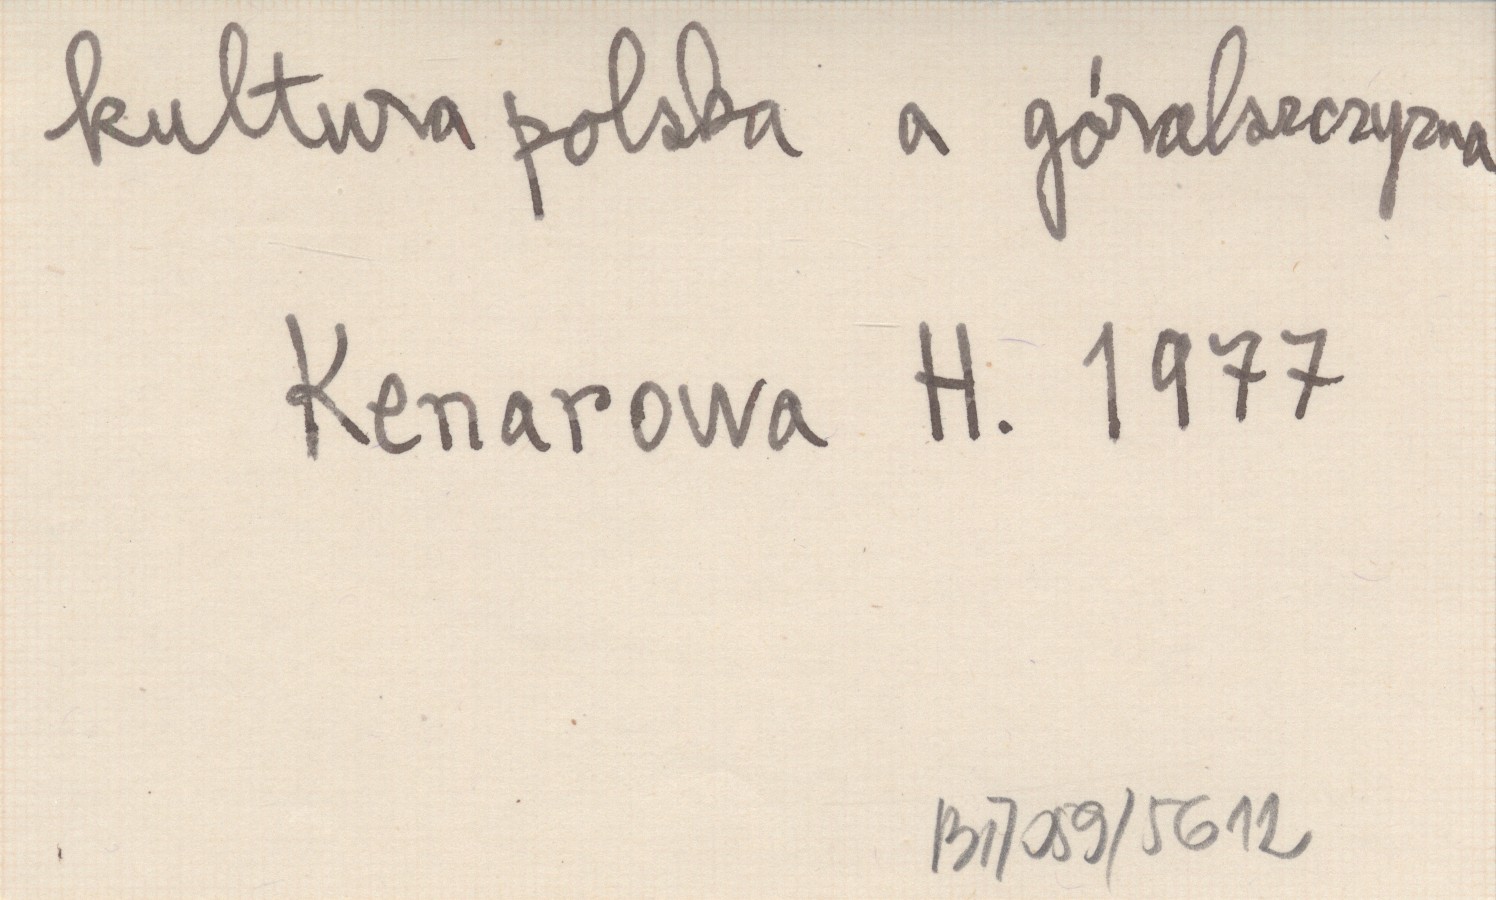 kultura polska a góralszczyzna
Kenarowa H. 1977
BI7/059/5612